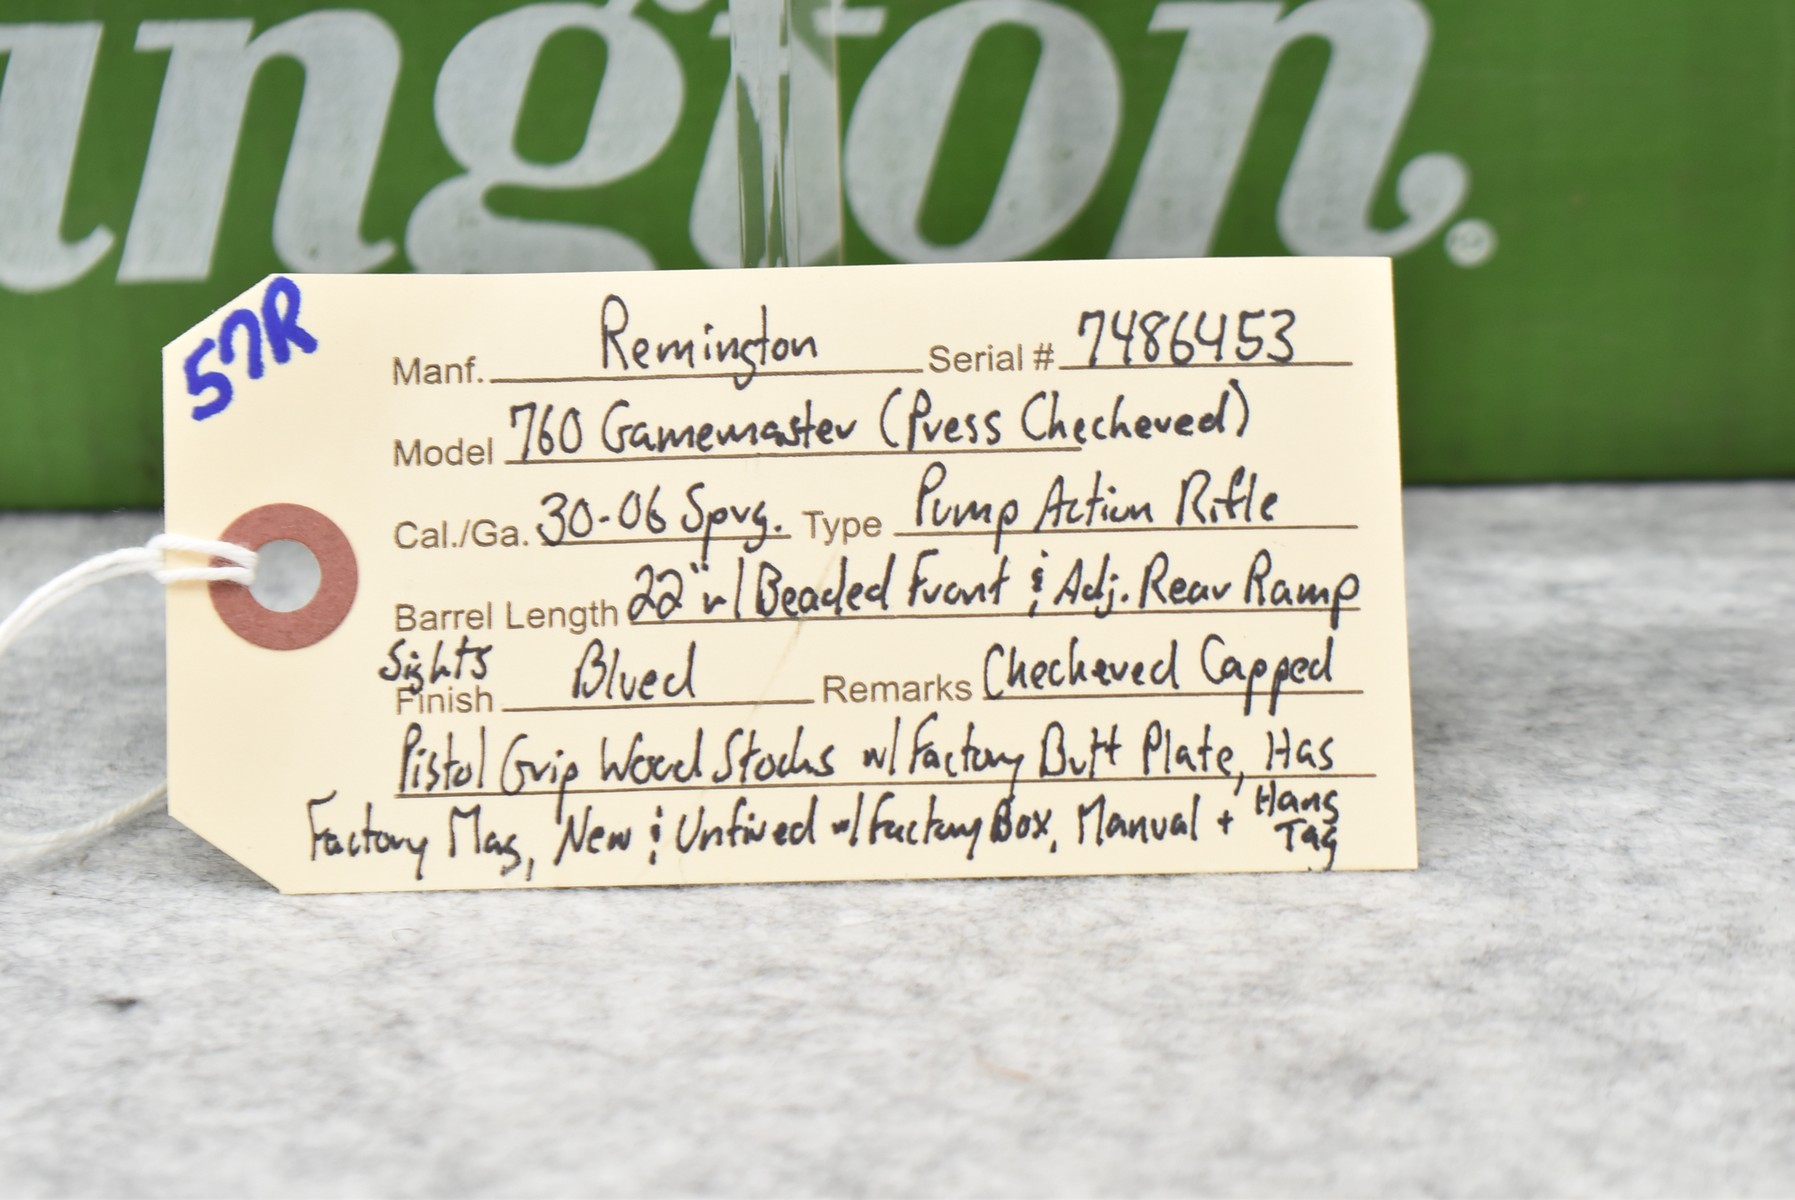 ington.
57R
Manf. Remington Serial # 7486453
Model 760 Gamemaster (Press Checkered)
Cal./Ga. 30-06 Sprg. Type Pump Action Rifle
Barrel Length 22" w/ Beaded Front & Adj. Rear Ramp
Sights
Finish Blued Remarks Checkered Capped
Pistol Grip Wood Stocks w/ Factory Butt Plate, Has
Factory Mag, New & Unfired w/ Factory Box, Manual + Hang
Tag